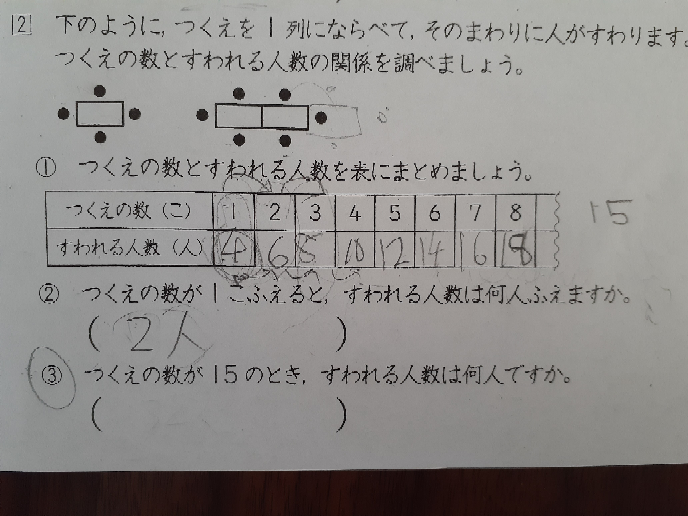 2 下のように,つくえを1列にならべて,そのまわりに人がすわります。
つくえの数とすわれる人数の関係を調べましょう。
① つくえの数とすわれる人数を表にまとめましょう。
つくえの数(こ) 1 2 3 4 5 6 7 8 15
すわれる人数(人) 4 6 8 10 12 14 16 18
② つくえの数が1こふえると,すわれる人数は何人ふえますか。
( 2人 )
③ つくえの数が15のとき,すわれる人数は何人ですか。
( )